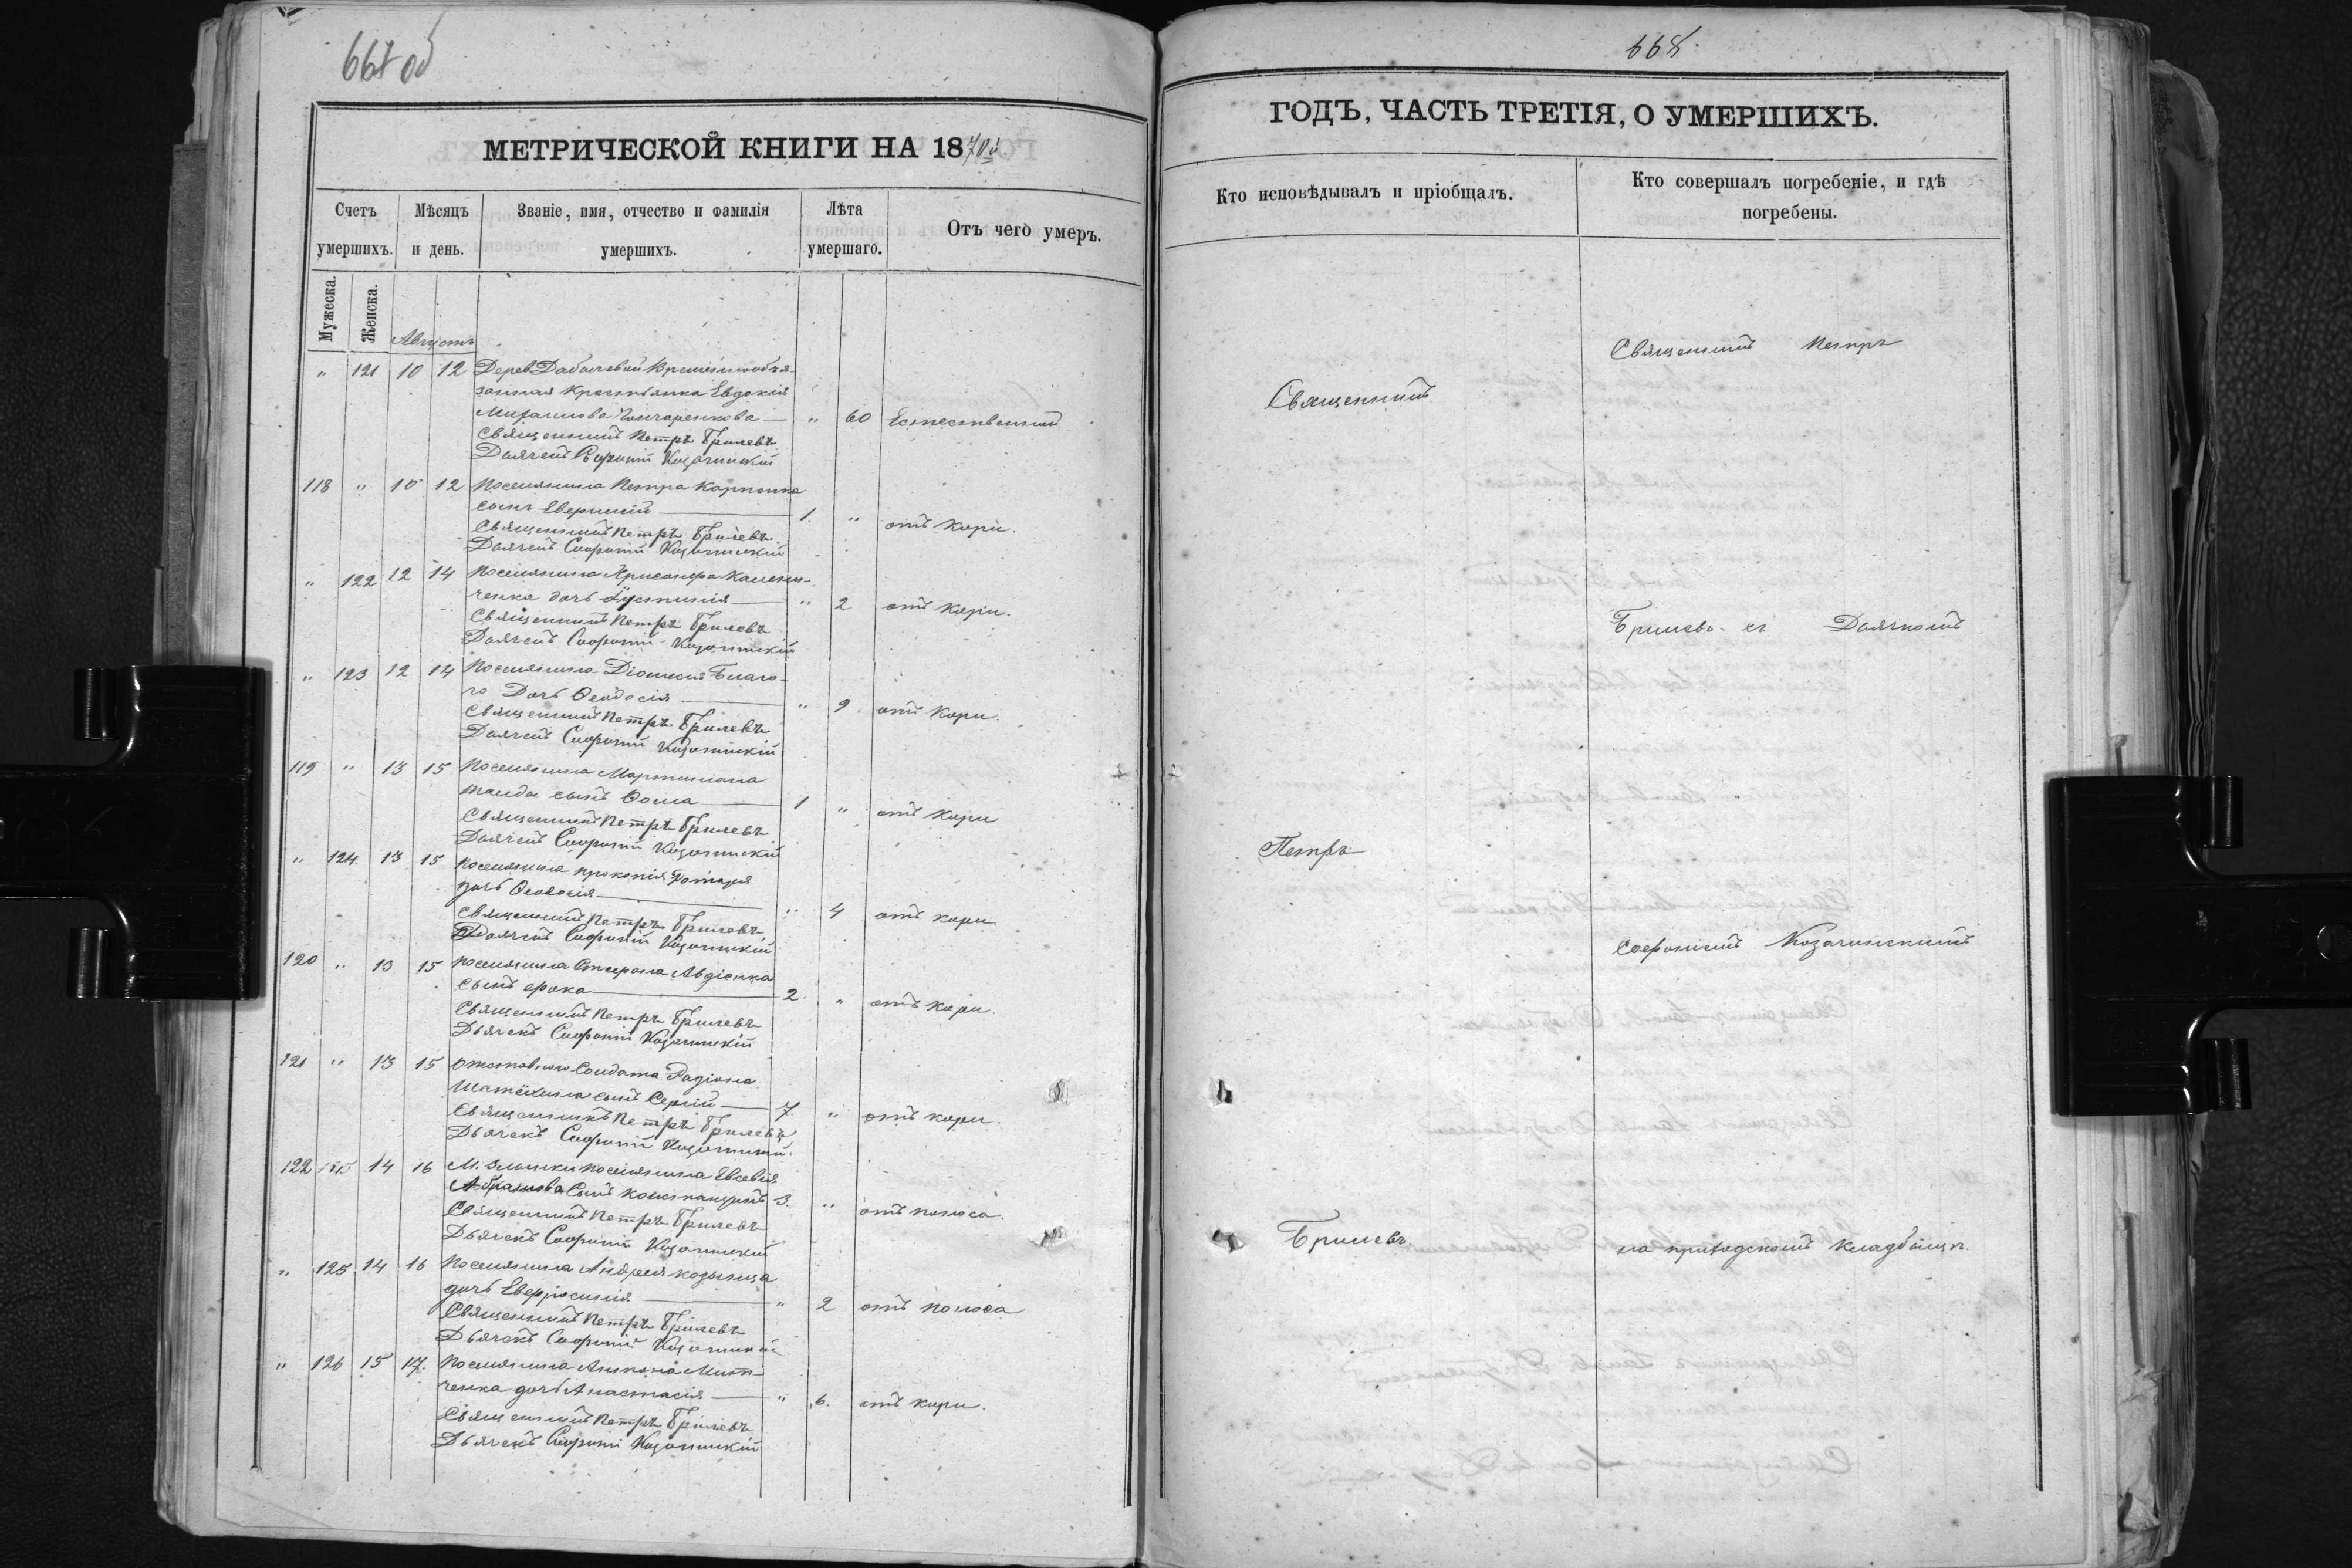 667 об
МЕТРИЧЕСКОЙ КНИГИ НА 1870й
Счетъ умершихъ.
Мѣсяцъ и день.
Званіе, имя, отчество и фамилія умершихъ.
Лѣта умершаго.
Отъ чего умеръ.
Мужеска.
Женска.
Августъ
" 121 10 12 Дерев. Временнообя-
занная Крестьянка Евдокія
Михаилова Гончаренкова — " 60 Естественной
Священникъ Петръ Брилевъ
Дьячекъ Софроній Козачинскій
118 " 10 12 Поселянина Петра Карпенка
сынъ — 1. " отъ Кори.
Священникъ Петръ Брилевъ
Дьячекъ Софроній Козачинскій
" 122 12 14 Поселянина Хрисанфа
ченка дочь Іустинія — " 2 отъ Кори.
Священникъ Петръ Брилевъ
Дьячекъ Софроній Козачинскій
" 123 12 14 Поселянина Діонисія Благо-
го Дочь Ѳеодосія — " 9. отъ Кори.
Священникъ Петръ Брилевъ
Дьячекъ Софроній Козачинскій
119 " 13 15 Поселянина Мартиніана
сынъ Ѳома — 1 " отъ Кори
Священникъ Петръ Брилевъ
Дьячекъ Софроній Козачинскій
" 124 13 15 Поселянина Прокопія Ротаря
дочь Ѳеодосія — " 4 отъ кори
Священникъ Петръ Брилевъ
Дьячекъ Софроній Козачинскій
120 " 13 15 Поселянина Авдіенка
сынъ — 2 " отъ Кори
Священникъ Петръ Брилевъ
Дьячекъ Софроній Козачинскій
121 " 13 15 Отставного Солдата Радіона
сынъ Сергій — 7 " отъ кори.
Священникъ Петръ Брилевъ
Дьячекъ Софроній Козачинскій
122 14 16 М. Злынки поселянина Евсевія
Абрамова Сынъ 3. " отъ поноса.
Священникъ Петръ Брилевъ
Дьячекъ Софроній Козачинскій
" 125 14 16 Поселянина Андрея
дочь Евфросинія — " 2 отъ поноса
Священникъ Петръ Брилевъ
Дьячекъ Софроній Козачинскій
" 126 15 17. Поселянина
ченка дочь Анастасія — " 6. отъ кори.
Священникъ Петръ Брилевъ
Дьячекъ Софроній Козачинскій
668.
ГОДЪ, ЧАСТЬ ТРЕТІЯ, О УМЕРШИХЪ.
Кто исповѣдывалъ и пріобщалъ.
Кто совершалъ погребеніе, и гдѣ
погребены.
Священникъ Петръ
Священникъ
Брилевъ съ Дьячкомъ
Петръ
Софроніемъ Козачинскимъ
Брилевъ
на приходскомъ кладбищѣ.